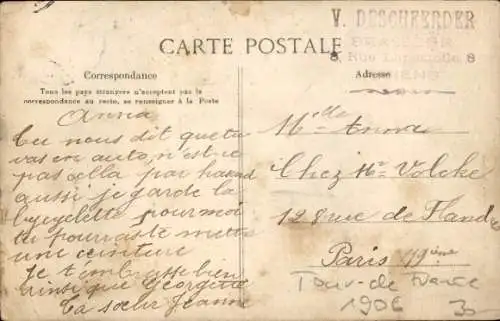 V. DESCHEERDER
BRASSEUR
8, Rue Lapostolle 8
CARTE POSTALE
Correspondance
Adresse
Tous les pays étrangers n'acceptent pas la
correspondance au recto, se renseigner à la Poste
Anna
tu nous dit que tu
vas en auto, n'est-ce
pas cella par hasard
aussi je garde la
bycyclette pour moi
tu pourras te mettre
une ceinture
Je t'embrasse bien
ainsi que Georgette
ta sœur Jeanne
Mlle Anna
Chez Mr Volcke
128 rue de Flandre
Paris 19ème
Tour de France
1906